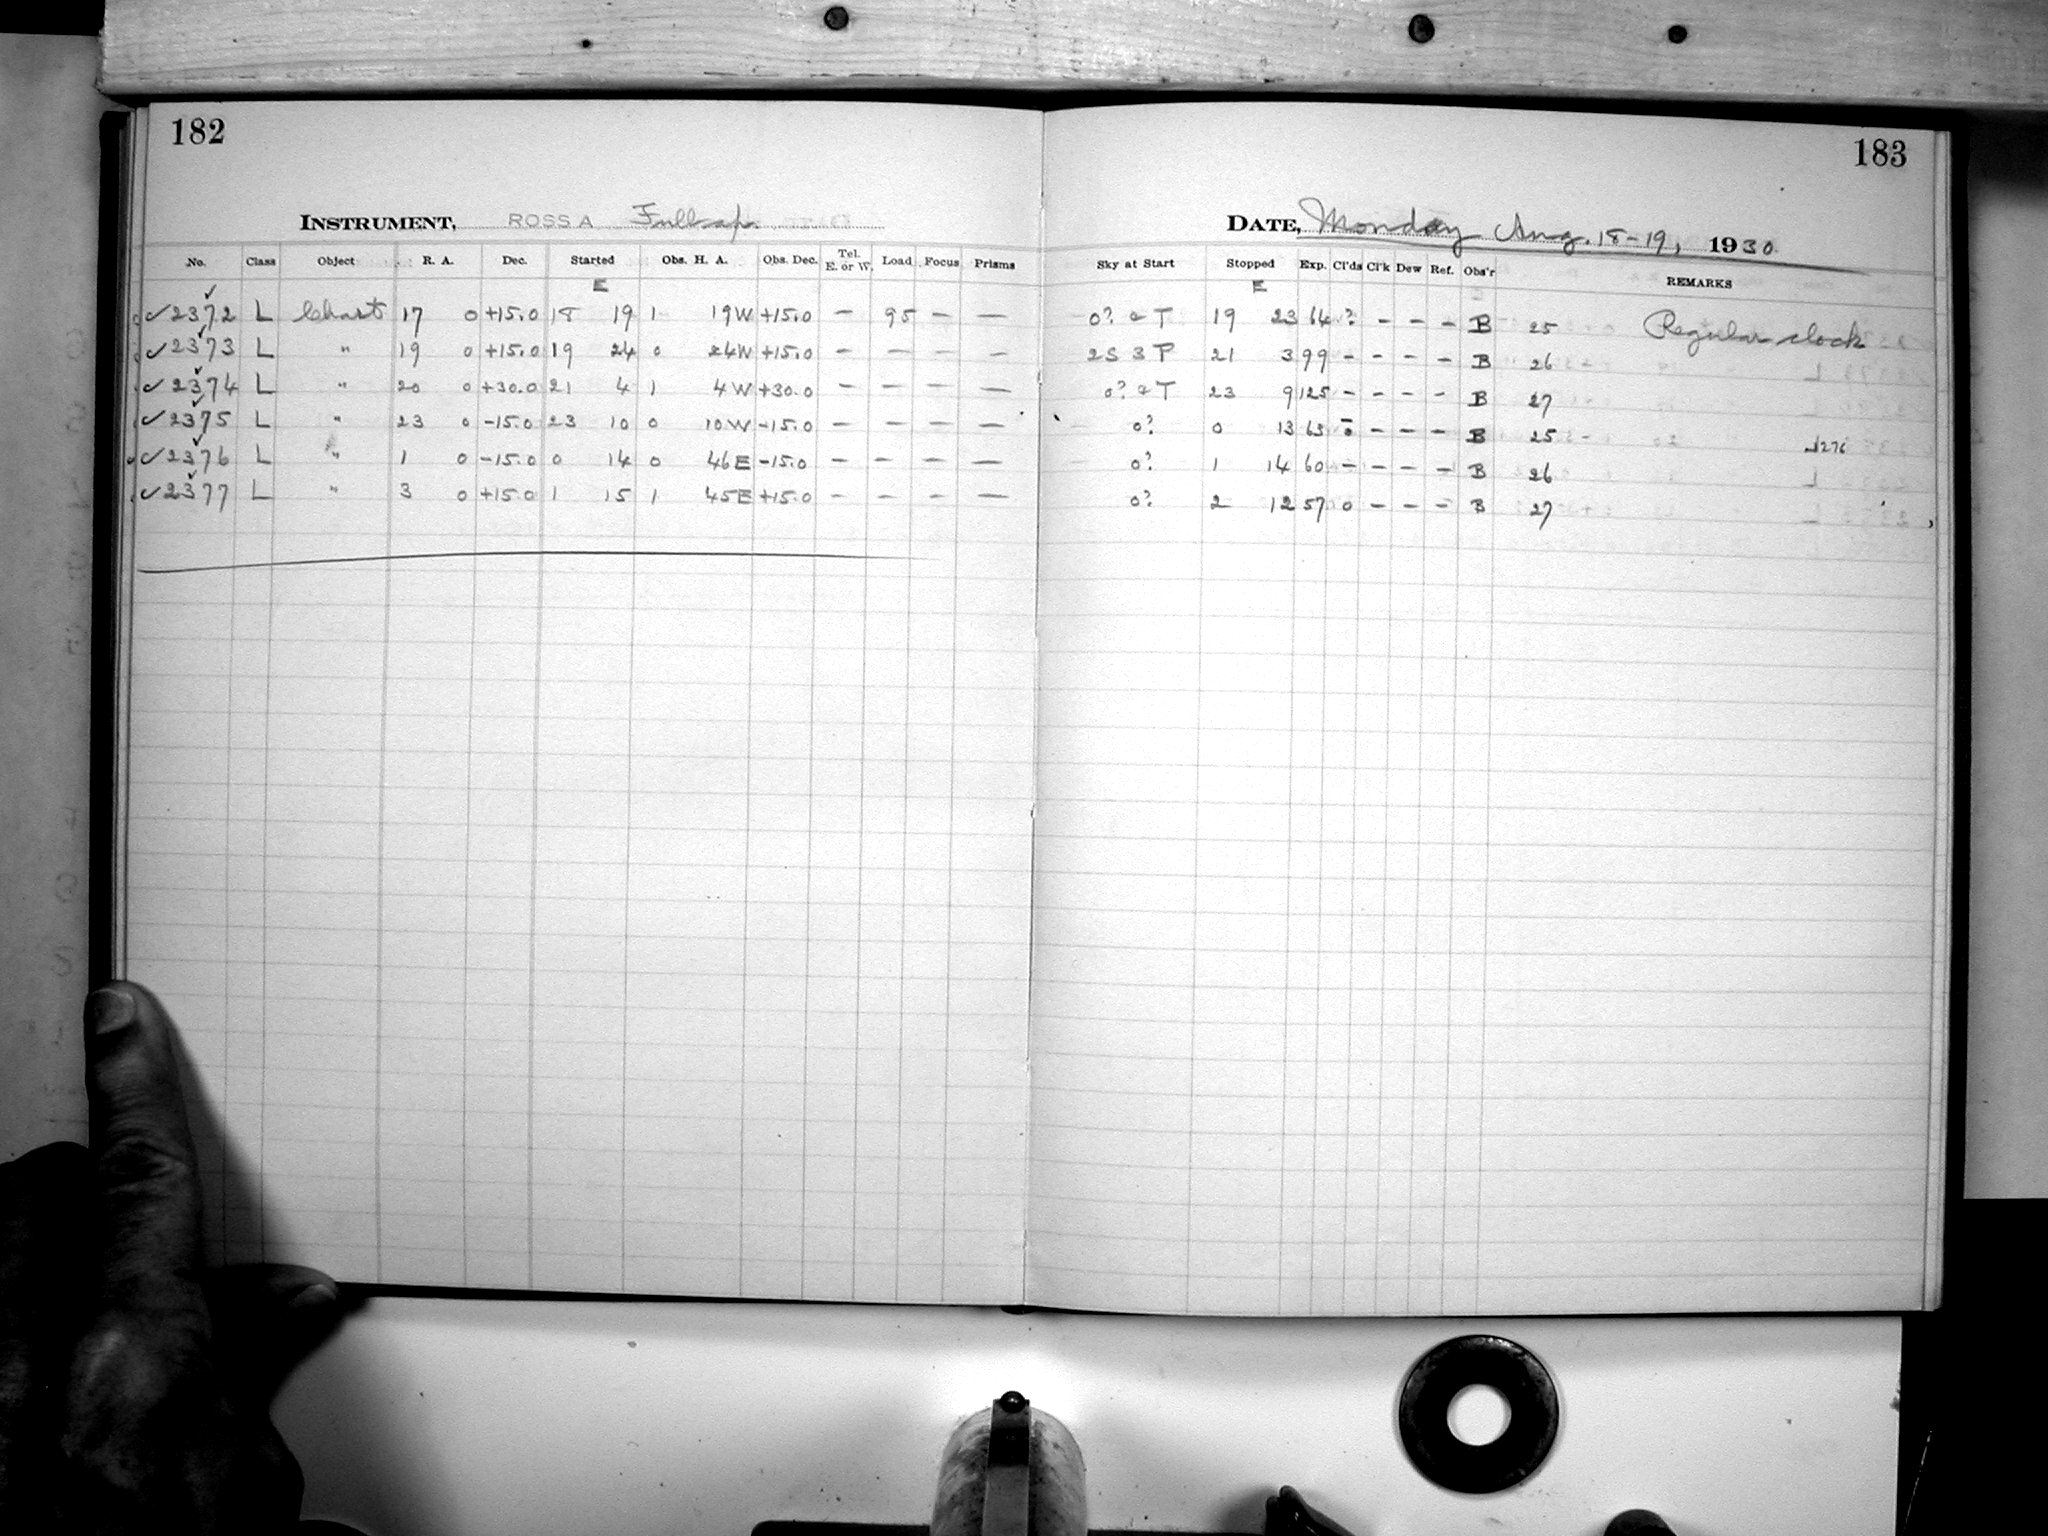 182
INSTRUMENT, ROSS A Full ap.
No. Class Object R. A. Dec. Started Obs. H. A. Obs. Dec. Tel. E. or W. Load Focus Prisms
E
✓2372 L Chart 17 0 +15.0 18 19 1 19W +15.0 – 95 – –
✓2373 L " 19 0 +15.0 19 24 0 24W +15.0 – – – –
✓2374 L " 20 0 +30.0 21 4 1 4W +30.0 – – – –
✓2375 L " 23 0 -15.0 23 10 0 10W -15.0 – – – –
✓2376 L " 1 0 -15.0 0 14 0 46E -15.0 – – – –
✓2377 L " 3 0 +15.0 1 15 1 45E +15.0 – – – –
183
DATE, Monday Aug. 18-19, 1930
Sky at Start Stopped Exp. Cl'ds Cl'k Dew Ref. Obs'r REMARKS
E
0? & T 19 23 64 ? – – – B 25 Regular clock
2S 3 P 21 3 99 – – – – B 26
0? & T 23 9 125 – – – – B 27
0? 0 13 63 0 – – – B 25 276
0? 1 14 60 – – – – B 26
0? 2 12 57 0 – – – B 27